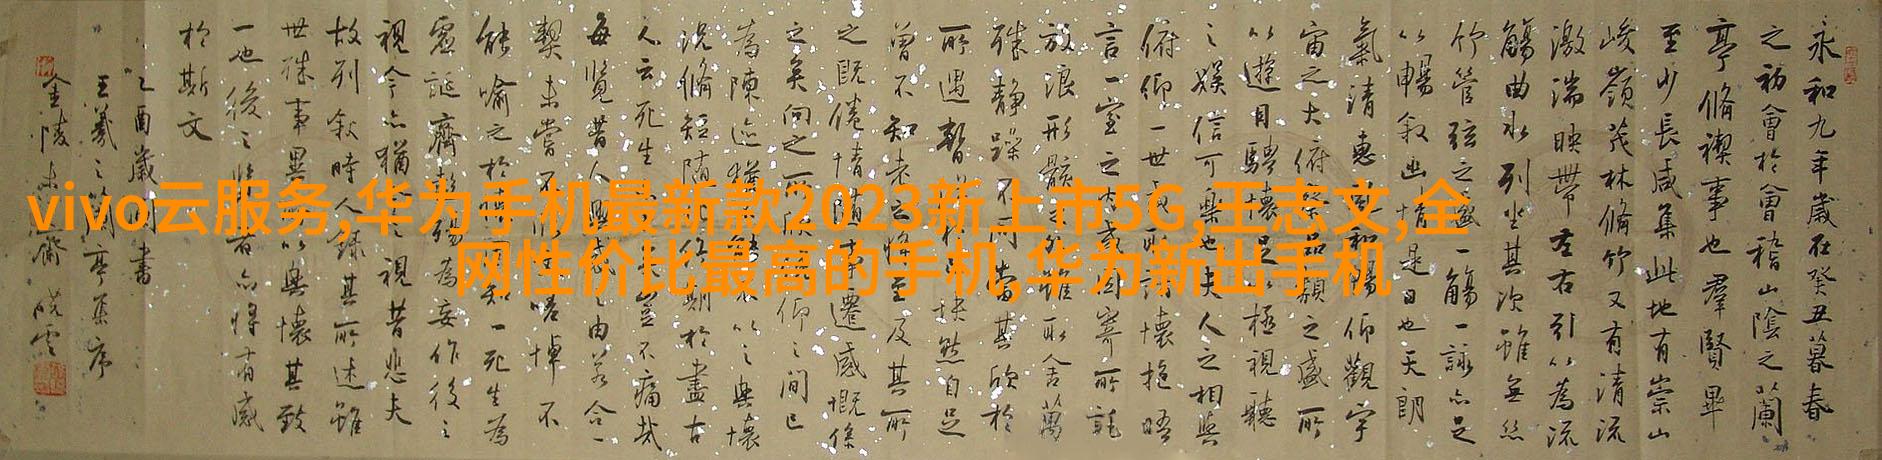 vivo云服务,华为手机最新款2023新上市5G,王志文,全
网性价比最高的手机,华为新出手机
永和九年歲在癸丑暮春
之初會於會稽山陰之蘭
亭脩禊事也羣賢畢
至少長咸集此地有崇山
峻嶺茂林脩竹又有清流
激湍映帶左右引以為流
觴曲水列坐其次雖無絲
竹管弦之盛一觴一詠亦足
以暢敘幽情是日也天朗
氣清惠風和暢仰觀宇
宙之大俯察品類之盛所
以遊目騁懷足以極視聽
之娛信可樂也夫人之相與
俯仰一世或取諸懷抱晤
言一室之內或因寄所託
放浪形骸之外雖取舍萬
殊靜躁不同當其欣於
所遇暫得於己快然自足
曾不知老之將至及其所
之既倦情隨事遷感慨係
之矣向之所欣俛仰之間已
為陳迹猶不能不以之興懷
況脩短隨化終期於盡古
人云死生亦大矣豈不痛哉
每覽昔人興感之由若合一
契未嘗不臨文嗟悼不
能喻之於懷固知一死生為
虛誕齊彭殤為妄作後之
視今亦猶今之視昔悲夫
故列敘時人錄其所述雖
世殊事異所以興懷其致
一也後之覽者亦將有感
於斯文
乙酉歲書
王羲之蘭亭集序
金陵